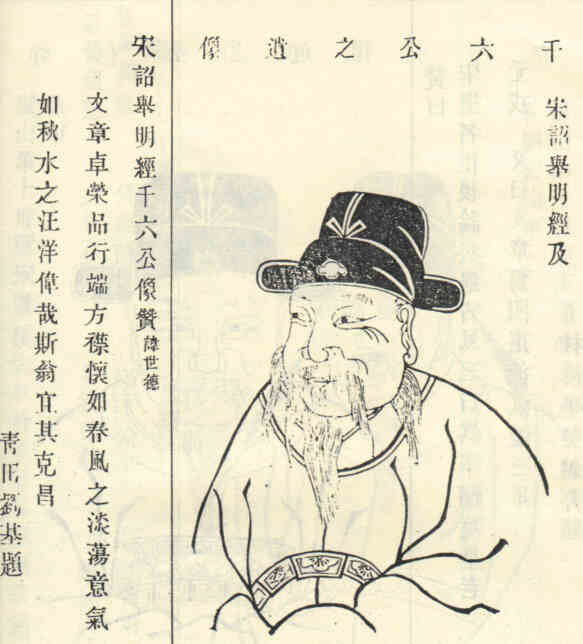 千六公之遺像
宋詔舉明經及
宋詔舉明經千六公像贊 諱世德
文章卓榮品行端方襟懷如春風之淡蕩意氣
如秋水之汪洋偉哉斯翁宜其克昌
青田劉基題